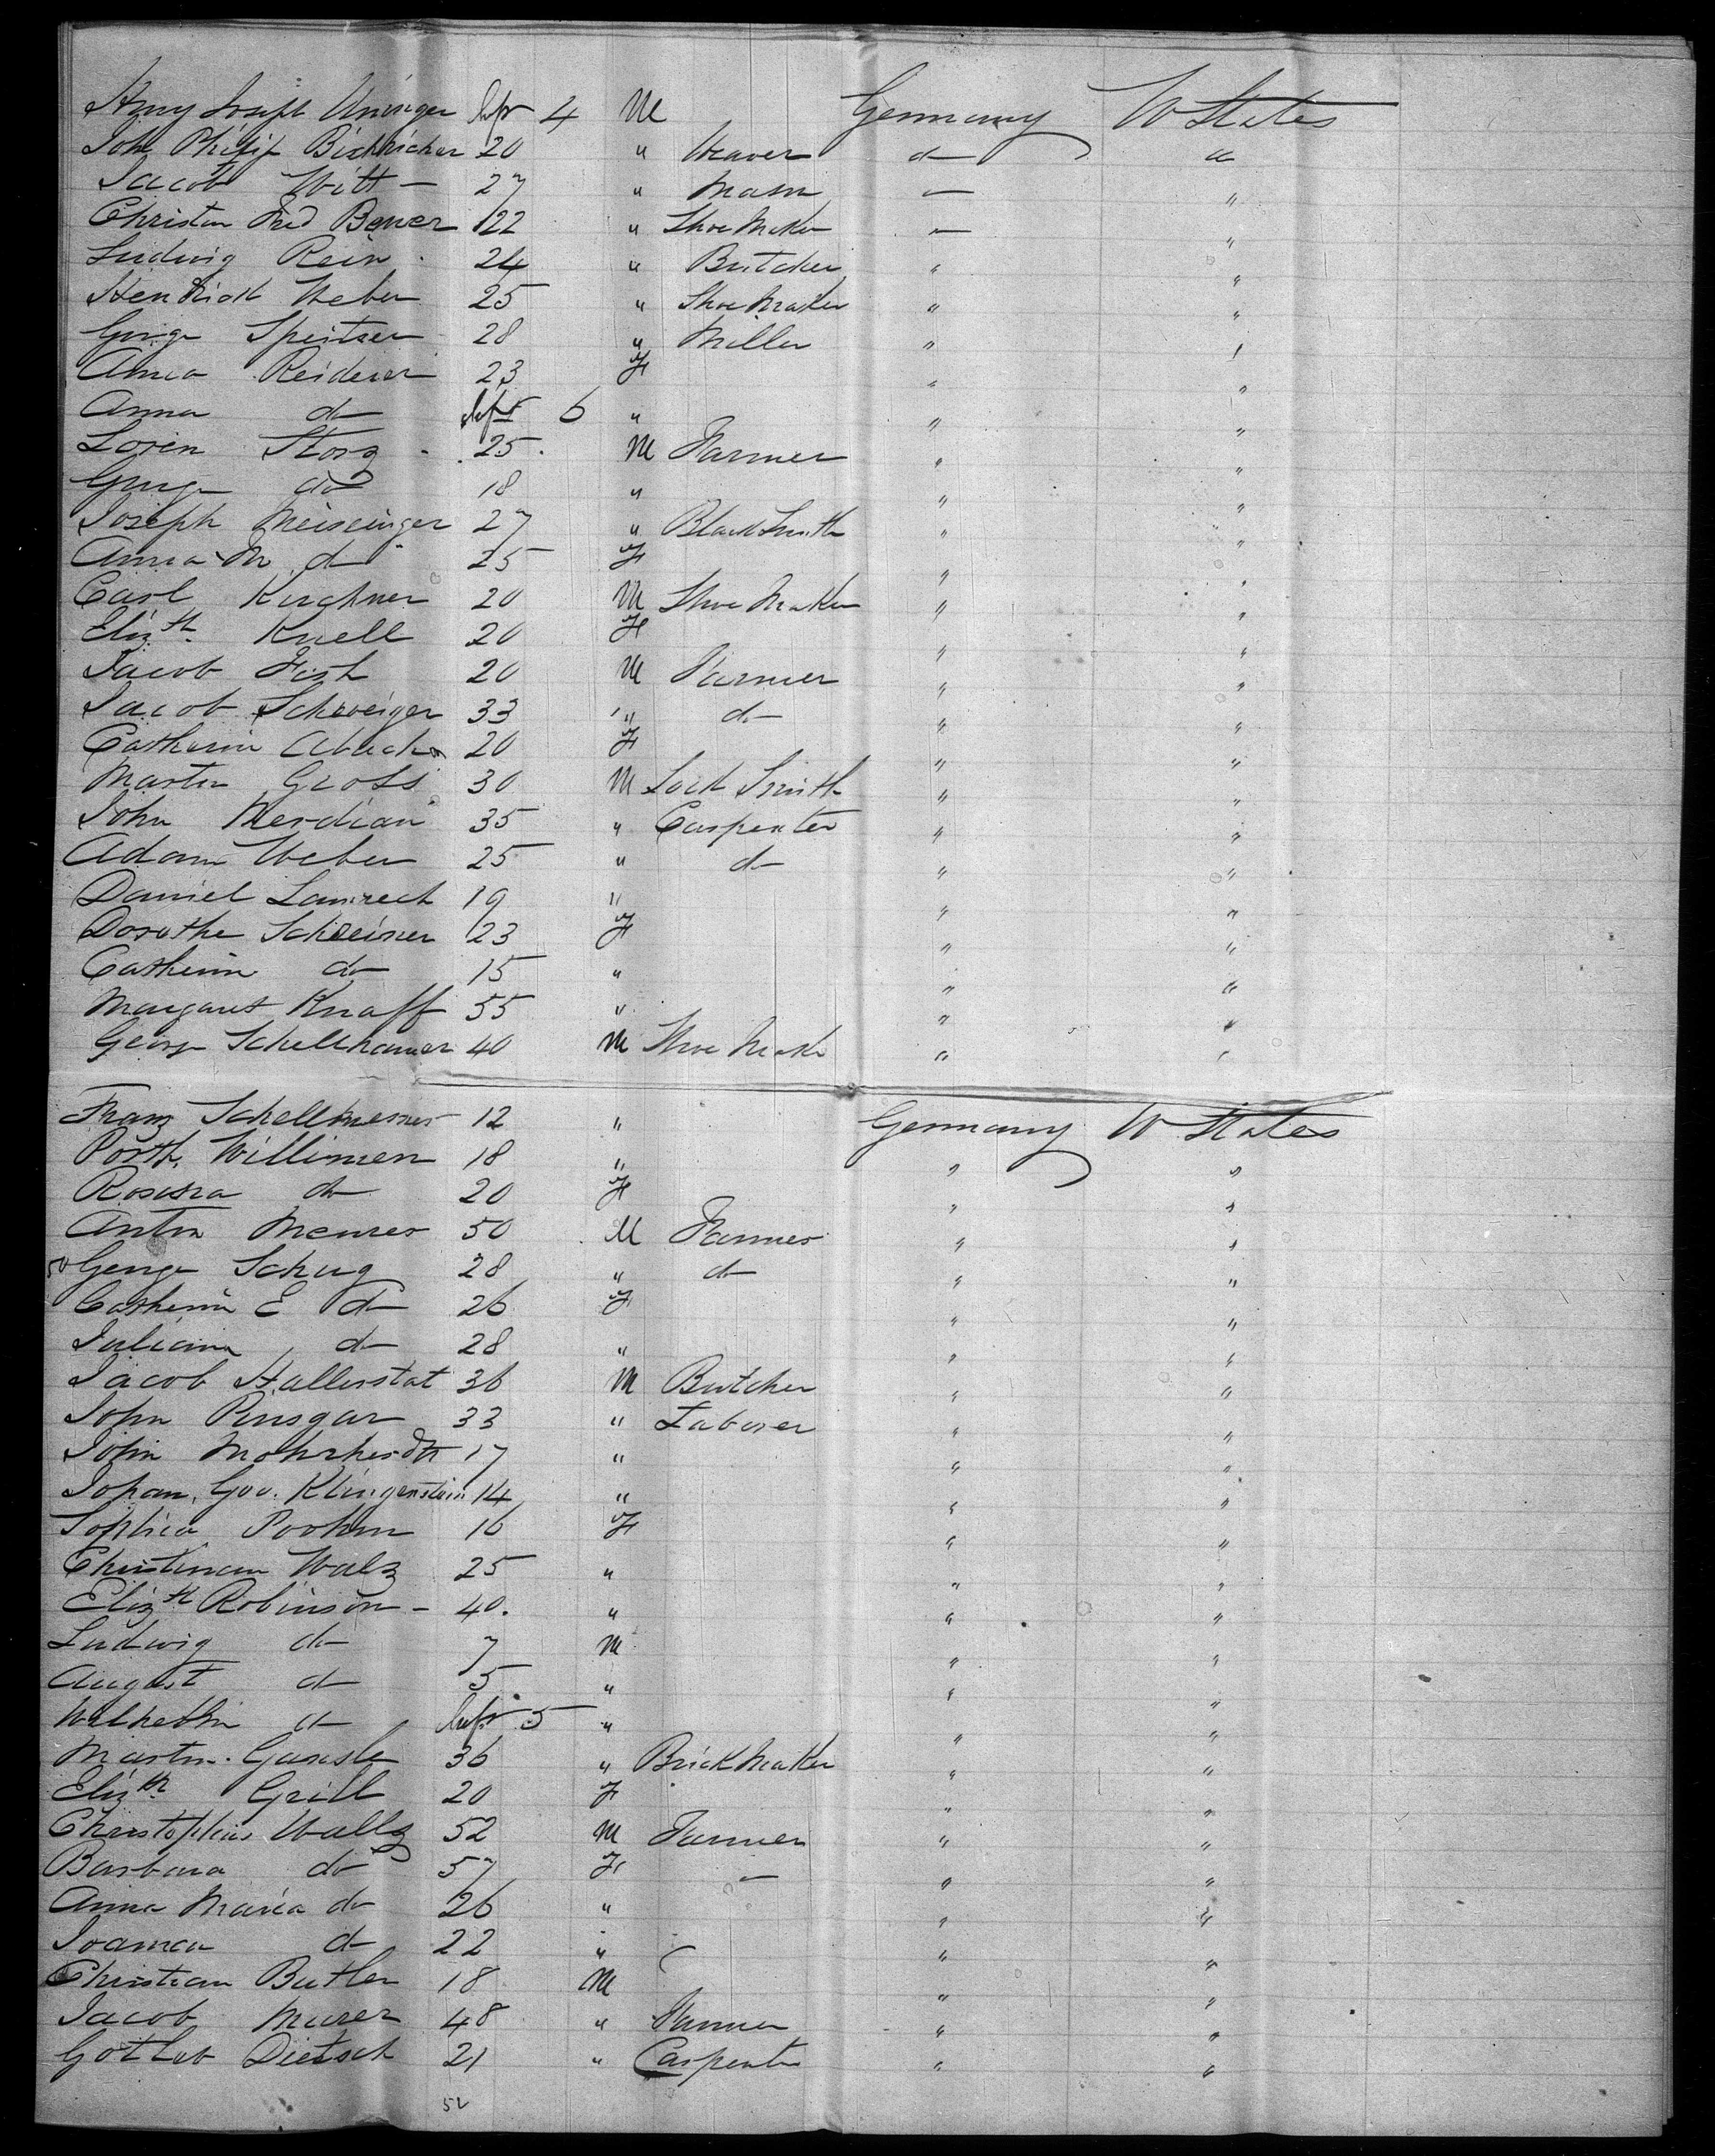 Joseph 4 M Germany U States
Joh Philip 20 " Weaver do "
Jacob Witt - 27 " Mason - "
Christian Fred Bener 22 " Shoe Maker - "
Ludwig Rein 24 " Butcher " "
Weber 25 " Shoe Maker " "
George Speitzer 28 " Miller " "
Anna Reiderer 23 F " "
Anna do 6 " " "
Loren Storz 25 M Farmer " "
George do 18 " " "
Joseph Meiseinger 27 " Black Smith " "
Anna M do 25 F " "
Carl Kirchner 20 M Shoe Maker " "
Elizth Knell 20 F " "
Jacob Fish 20 M Farmer " "
Jacob Schweiger 33 " do " "
Catherin 20 F " "
Martin Gross 30 M Lock Smith " "
John Merdian 35 " Carpenter " "
Adam Weber 25 " do " "
Daniel Lamrech 19 " " "
Dorothe Schreiner 23 F " "
Catherin do 15 " " "
Margaret Knaff 55 " " "
George Schellhamer 40 M Shoe Mak " "
Franz 12 " Germany U States
Willimen 18 " " "
do 20 F " "
Anton Meurer 50 M Farmer " "
50 George Schug 28 " do " "
Catherin E do 26 F " "
Juliana do 28 " " "
Jacob Hallerstat 36 M Butcher " "
John Pinsgar 33 " Laborer " "
John 17 " " "
Johan Geo. Klingenstein 14 " " "
Sophia 16 F " "
Walz 25 " " "
Elizth Robinson - 40. " " "
Ludwig do 7 M " "
August do 5 " " "
do 5 " " "
Martin 36 " Brick Maker " "
Elizth Grill 20 F " "
Wallz 52 M Farmer " "
Barbara do 57 F - " "
Anna Maria do 26 " " "
do 22 " " "
Christian Butler 18 M " "
Jacob Murer 48 " Farmer " "
Gotleb Dietsch 21 " Carpenter " "
52